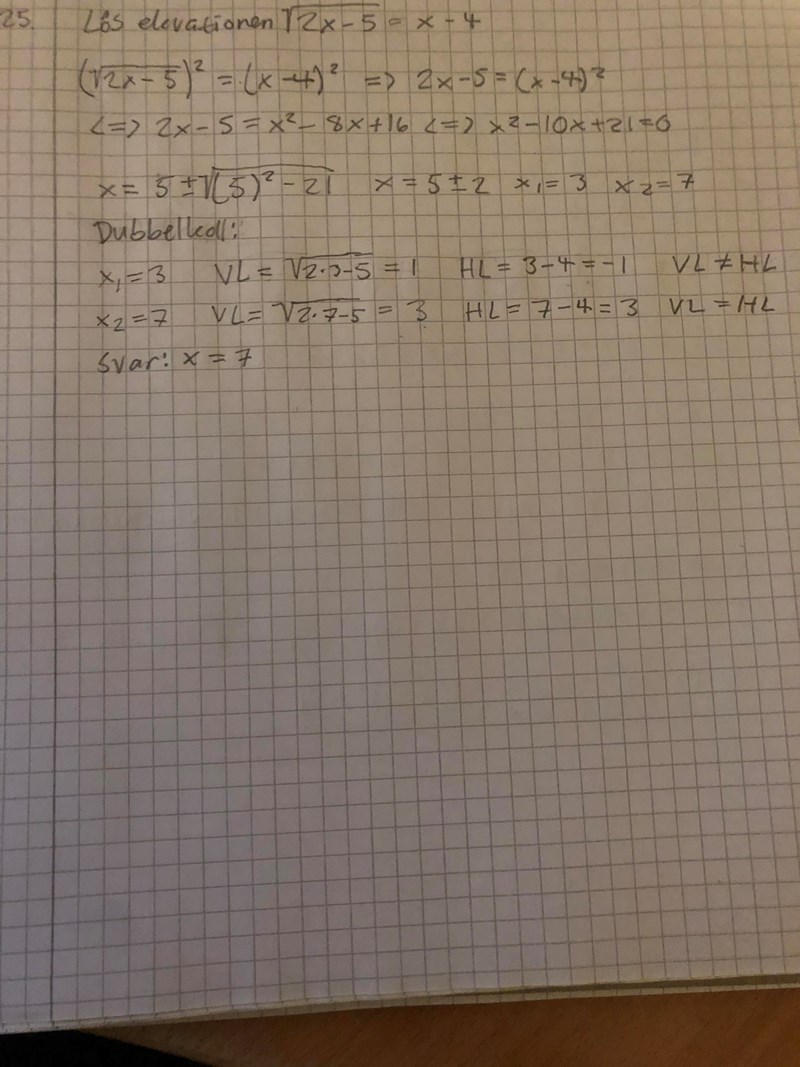 25. Lös elevationen √(2x-5) = x-4
(√(2x-5))² = (x-4)² => 2x-5=(x-4)²
<=> 2x-5=x²-8x+16 <=> x²-10x+21=0
x= 5±√((5)²-21) x=5±2 x₁=3 x₂=7
Dubbelkoll:
x₁=3 VL=√(2·3-5) =1 HL=3-4=-1 VL≠HL
x₂=7 VL=√(2·7-5) = 3 HL=7-4=3 VL=HL
Svar: x=7